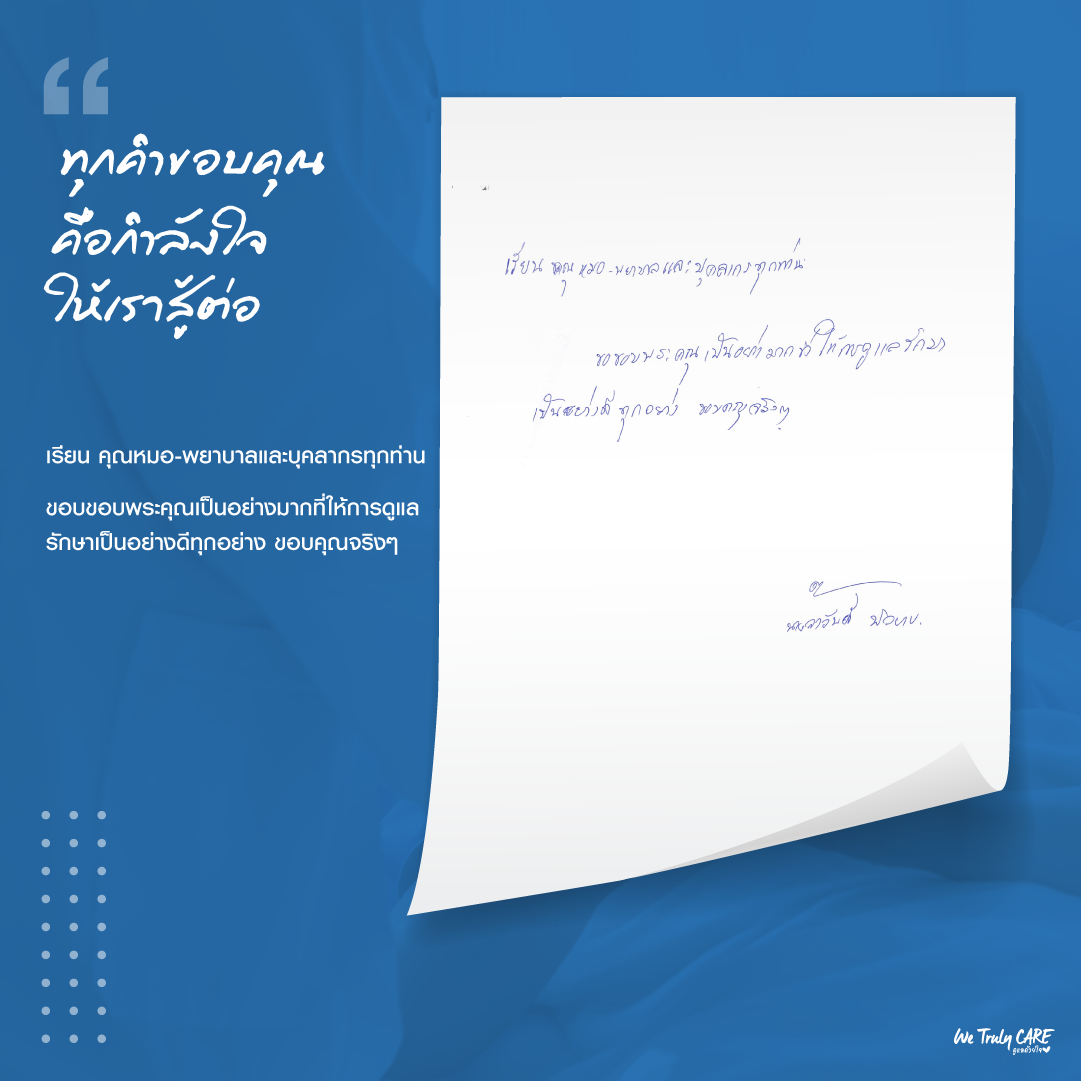 ทุกคำขอบคุณ
คือกำลังใจ
ให้เราสู้ต่อ
เรียน คุณหมอ-พยาบาลและบุคลากรทุกท่าน
ขอบขอบพระคุณเป็นอย่างมากที่ให้การดูแล
รักษาเป็นอย่างดีทุกอย่าง ขอบคุณจริงๆ
เรียน คุณหมอ-พยาบาลและบุคลากรทุกท่าน
ขอขอบพระคุณเป็นอย่างมากที่ให้การดูแลรักษา
เป็นอย่างดีทุกอย่าง ขอบคุณจริงๆ
We Truly CARE
ดูแลด้วยใจ